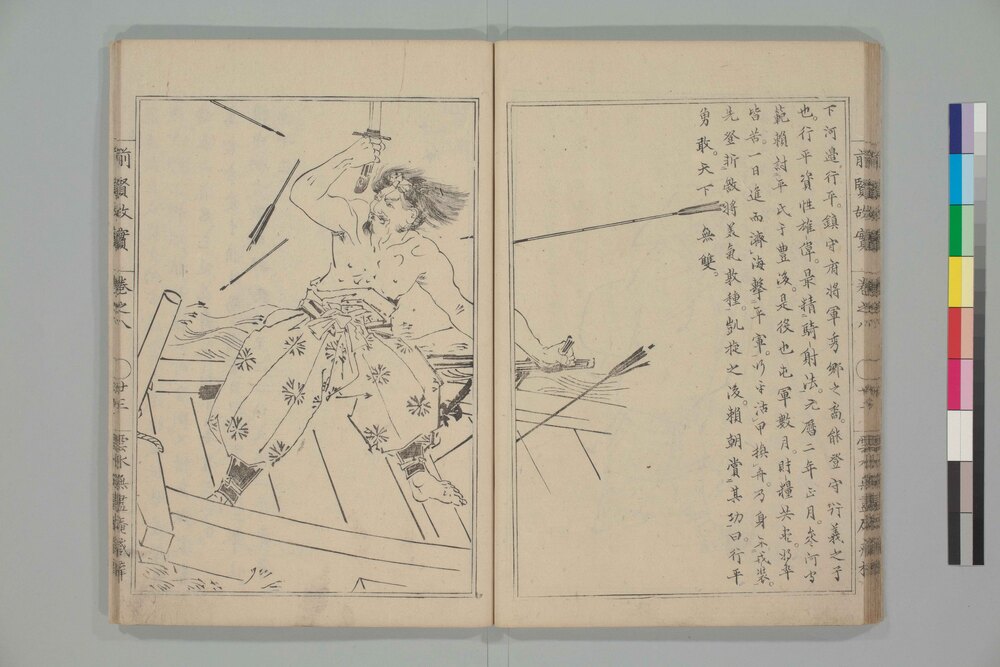 下河邉行平。鎮守府將軍秀郷之裔。能登守行義之子
也。行平資性雄偉。最精騎射法。元暦二年正月。從河守
範頼討平氏于豊後。是役也屯軍數月。財糧共
皆苦。一日進而濟海擊平軍。行平沽甲換舟。乃身不戒裝。
先登斫敵將美氣敦種。凱旋之後。頼朝賞其功曰行平
勇敢。天下無雙。
前賢故實
卷之八
前賢故實
卷之八